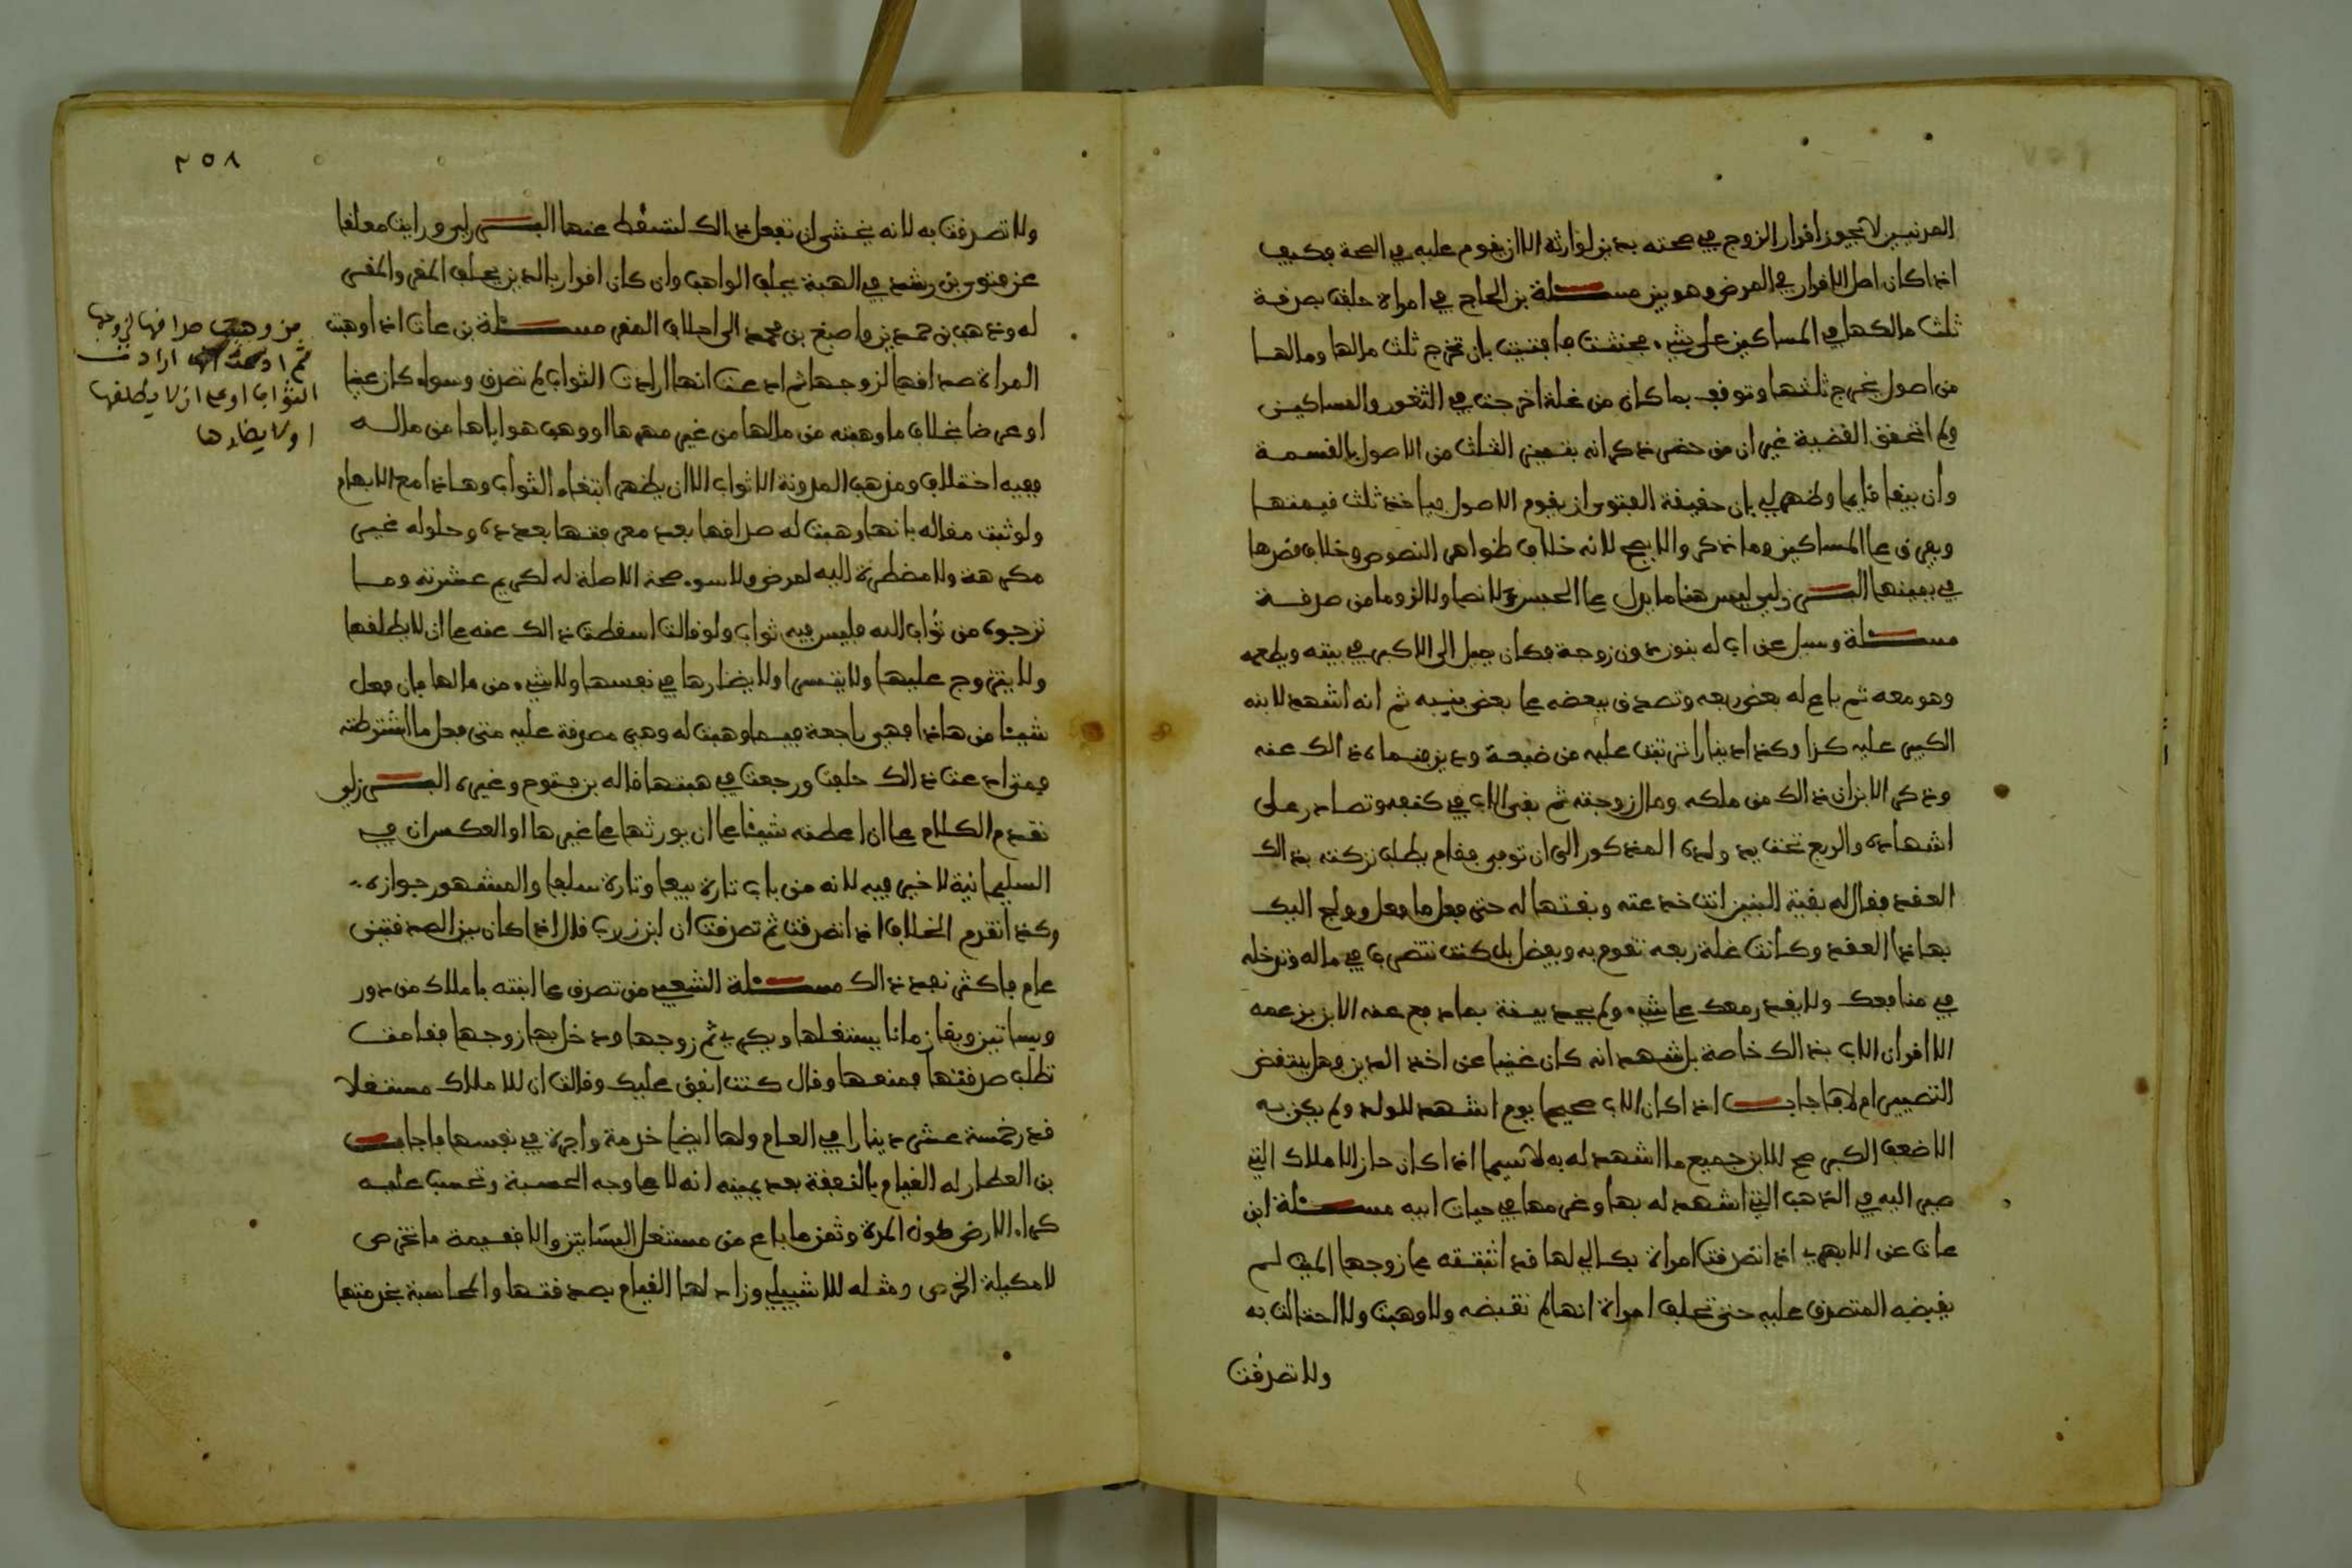 المدنيين لا يجوز اقرار الزوج في صحته بدين لوارثه الا ان يقوم عليه في الصحة فكيف
اذا كان اصل الاقرار في المرض وهو بين مسئلة بن الحاج في امراة حلفت بصدقة
ثلث مالكها في المساكين على شيء فحنثت فافتيت بان تخرج ثلث مالها ومالها
من اصول يخرج ثلثها وتوقف بما كان من غلة اخرجت في الثغور والمساكين
ولم اتحقق القضية غير ان من حضر ذكر انه بقيمين الثلث من الاصول بالقسمة
وان يبقا قايما وظهر لي بان حقيقة الفتوى ان يقوم الاصول فياخذ ثلث قيمتها
ويفرق على المساكين وما ذكر والا يصح لانه خلاف ظواهر النصوص وخلاف قصدها
في يمينها البـــرزلي ليس هنا ما يدل على الحبس لا نصا ولا لزوما من صدقة
مسئلة وسيل عن اب له بنون دون زوجة فكان يميل الى الاكبر في بيته ويطعمه
وهو معه ثم باع له بعض ربعه وتصدق ببعضه على بعض بنيه ثم انه اشهد لابنه
الكبير عليه كذا وكذا دينارا ترتبت عليه من ضيعة ودين قضاه ذالك عنه
وذكر الابن ان ذالك من ملكه ومال زوجته ثم بقى الاب في كنفه وتصادر على
اشهاده والربع تحت يد ولده المذكور الى ان توفى فقام بطلب تركته بذالك
العقد فقال له بقية البنين انت خدعته وبعتها له حتى فعل ما فعل وولج اليك
بهاذا العقد وكانت غلة ربعه تقوم به ويفضل بل كنت تتصرف في ماله وتدخله
في منافعك ولا يقدر معك على شيء ولم يجد بينة بما دفع عنه الابن بزعمه
الا اقرار الاب بذالك خاصة بل شهد انه كان غنيا عن اخذ الدين وهل ينتقض
التصيير ام لا فاجاب اذا كان الاب صحيحا يوم اشهد للولد ولم يكن به
الا ضعف الكبر صح للابن جميع ما اشهد له به لاسيما اذا كان حاز الاملاك التي
صير اليه في الذهب التي اشهد له بها وغرمها في حيات ابيه مسئلة ابن
عات عن الابهري اذا تصدقت امراة بكالي لها قد اثبتته على زوجها الميت لم
يقبضه المتصدق عليه حتى تحلف امراة انها لم تقبضه ولا وهبت ولا احتالت به
ولا تصدقت
٢٥٨
ولا تصدقت به لانه يخشى ان تفعل ذالك لتسقط عنها البـــرزلي ورايت معلقا
عن فتوى بن رشد في الهبة يحلف الواهب وان كان اقرار بالدين يحلف المقر والمقر
له وذهب بن حمدين واصبغ بن محمد الى احلاف المقر مسئلة بن عات اذا وهبت
المراة صداقها لزوجها ثم ادعت انها ارادت الثواب لم تصدق وسواه كان عينا
او عرضا بخلاف ما وهبته من مالها من غير مهرها او وهب هو اياها من ماله
ففيه اختلاف ومذهب المدونة الا ثواب الا ان يظهر ابتغاء الثواب وهاذا مع الابهام
ولو ثبت مقاله بانها وهبت له صداقها بعد معرفتها بعدده وحلوله غير
مكرهة ولا مضطرة اليه لمرض ولا سوء صحة الا صلة له لكريم عشرته وما
ترجوه من ثواب الله فليس فيه ثواب ولو قالت اسقطت ذالك عنه على ان لا يطلقها
ولا يتزوج عليها ولا يتسرا ولا يضارها في نفسها ولا شيء من مالها فان فعل
شيئا من هاذا فهي راجعة فيما وهبت له وهي مصدقة عليه متى فعل ما اشترطته
فمتى ادعت ذالك حلفت ورجعت في هبتها قاله بن فتوح وغيره البـــرزلي
تقدم الكلام على ان اعطته شيئا على ان يورثها على غيرها او العكس ان في
السليمانية لا خير فيه لانه من باب تارة بيعا وتارة سلفا والمشهور جوازه
وكذا تقدم الخلاف اذا تصدقت ثم تصدقت ان ابن زرب قال اذا كان بين الصدقتين
عام فاكثر نفذ ذالك مسئلة الشعبي من تصدق على ابنته باملاك من دور
وبساتين وبقا زمانا يستغلها ويكري ثم زوجها ودخل بها زوجها فقامت
تطلب صدقتها فمنعها وقال كنت انفق عليك وقالت ان للاملاك مستغلا
قدر خمسة عشر دينارا في العام ولها ايضا خدمة واجرة في نفسها فاجاب
بن العطار له القيام بالنفقة بعد يمينه انه لا على وجه الحسبة وتحسب عليه
كراء الارض طول المدة وثمن ما باع من مستغل البساتين والا فقيمة ما تخرص
لا مكيلة الخرص ومثله للاشبيلي وزاد لها القيام بصدقتها والمحاسبة بخدمتها
من وهبت صداقها لزوجها
ثم ادعت انها ارادت
الثواب او على ان لا يطلقها
او لا يضارها